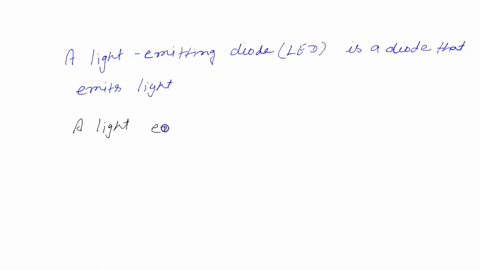 A light-emitting diode (LED) is a diode that
emits light
A light e